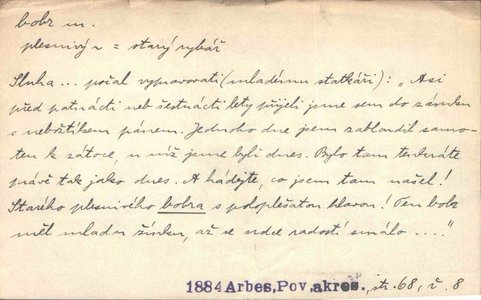 bobr m.
plesnivý ~ = starý rybář
Sluha ... počal vypravovati (mladému statkáři): „Asi
před patnácti neb šestnácti lety přijeli jsme sem do zámku
s nebožtíkem pánem. Jednoho dne jsem zabloudil samo-
ten k zátoce, u níž jsme byli dnes. Bylo tam tenkráte
právě tak jako dnes. A hádejte, co jsem tam našel!
Starého plesnivého bobra s poloplešatou hlavou! Ten bobr
měl mladou žínku, až se srdce radostí smálo ...."
1884 Arbes, Pov. akres., str. 68, č. 8